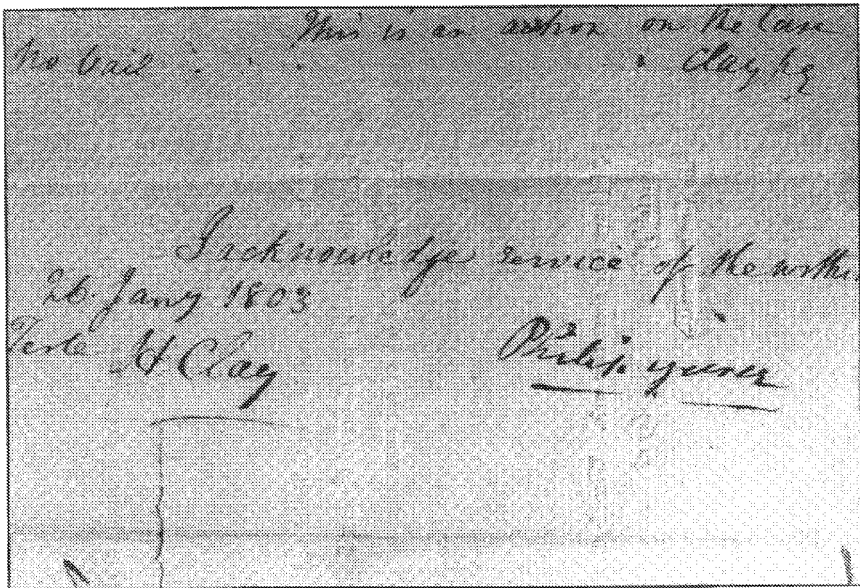 This is an action on the Case
No bail Clay pq
I acknowledge service of the within
26. Jany 1803
Teste H Clay Philip